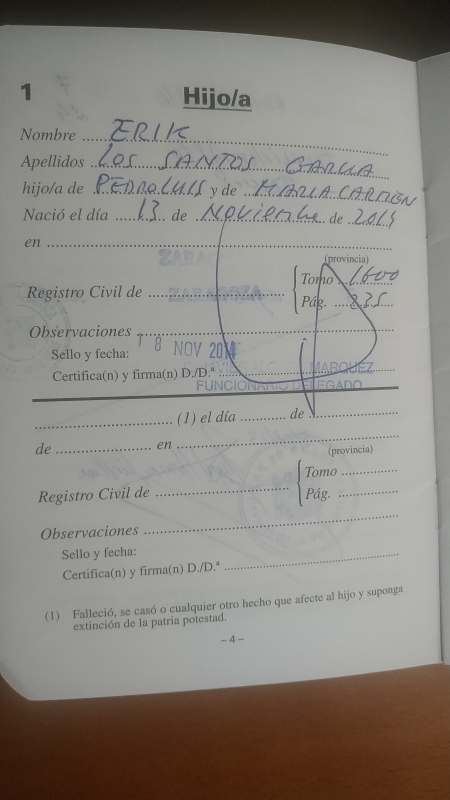 1
Hijo/a
Nombre ERIK
Apellidos LOS SANTOS GARCIA
hijo/a de PEDRO LUIS y de MARIA CARMEN
Nació el día 13 de Noviembre de 2014
en
(provincia)
ZARAGOZA
Registro Civil de ZARAGOZA
Tomo 1600
Pág. 235
Observaciones
Sello y fecha: 18 NOV 2014
MARQUEZ
Certifica(n) y firma(n) D./D.ª
FUNCIONARIO DELEGADO
(1) el día de
de en
(provincia)
Registro Civil de
Tomo
Pág.
Observaciones
Sello y fecha:
Certifica(n) y firma(n) D./D.ª
(1) Falleció, se casó o cualquier otro hecho que afecte al hijo y suponga
extinción de la patria potestad.
– 4 –